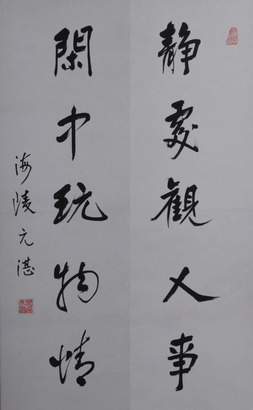 靜處觀人事
閑中玩物情
海陵元湛